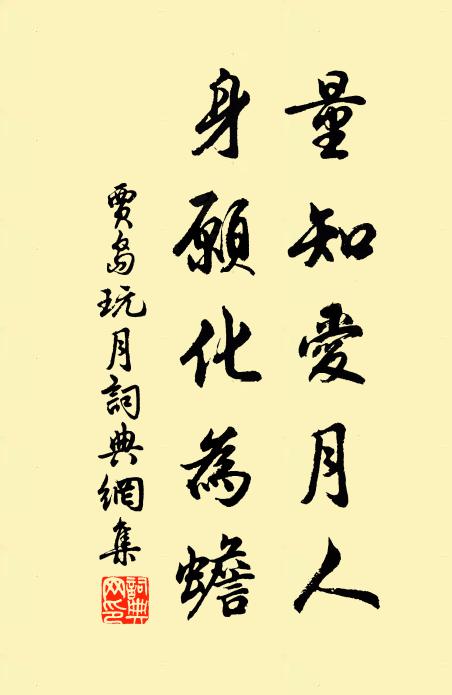 量知愛月人
身願化為蟾
賈島玩月詞典網集
詞典
网印